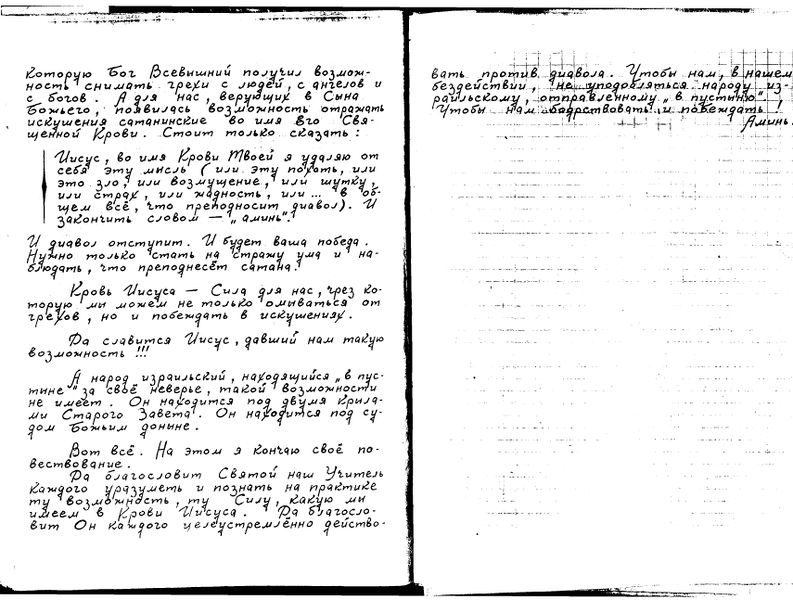 которую Бог Всевышний получил возмож-
ность снимать грехи с людей, с ангелов и
с богов. А для нас, верующих в Сына
Божьего, появилась возможность отражать
искушения сатанинские во имя Его Свя-
щенной Крови. Стоит только сказать:
Иисус, во имя Крови Твоей я удаляю от
себя эту мысль (или эту похоть, или
это зло, или возмущение, или шутку,
или страх, или жадность, или ... в об-
щем всё, что преподносит диавол). И
закончить словом — „аминь".
И диавол отступит. И будет ваша победа.
Нужно только стать на стражу ума и на-
блюдать, что преподнесёт сатана.
Кровь Иисуса — Сила для нас, чрез ко-
торую мы можем не только омываться от
грехов, но и побеждать в искушениях.
Да славится Иисус, давший нам такую
возможность !!!
А народ израильский, находящийся „в пус-
тыне" за своё неверье, такой возможности
не имеет. Он находится под двумя крыла-
ми Старого Завета. Он находится под су-
дом Божьим доныне.
Вот всё. На этом я кончаю своё по-
вествование.
Да благословит Святой наш Учитель
каждого уразуметь и познать на практике
ту возможность, ту Силу, какую мы
имеем в Крови Иисуса. Да благосло-
вит Он каждого целеустремлённо действо-
вать против диавола. Чтобы нам, в нашем
бездействии, не уподобляться народу из-
раильскому, отправленному „в пустыню".
Чтобы нам бодрствовать и побеждать!
Аминь.